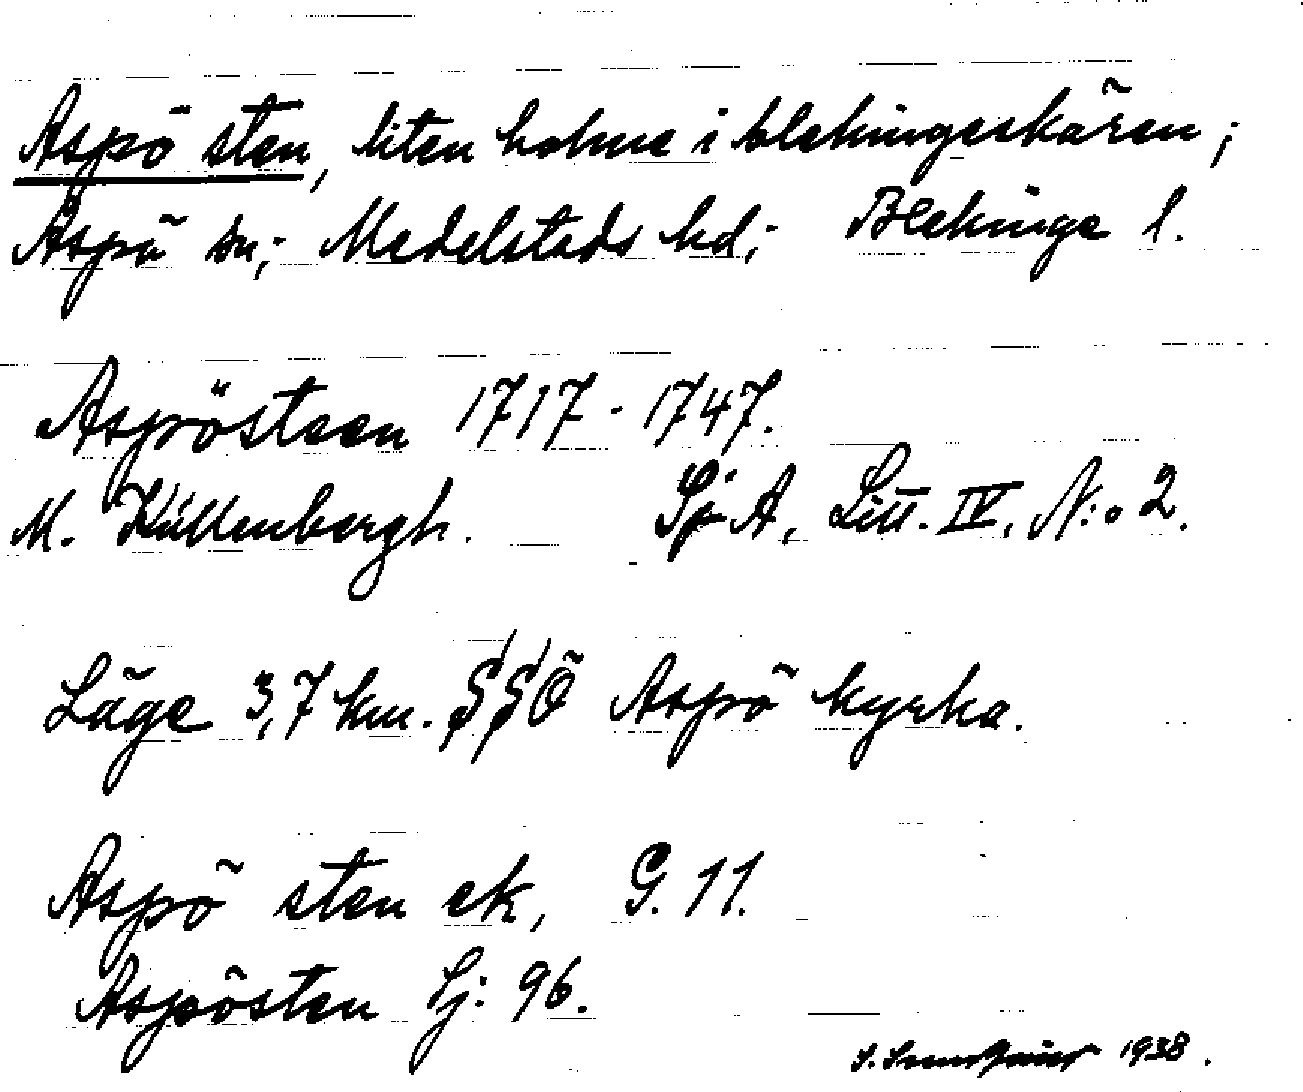 Aspö sten, liten holme i blekingeskären;
Aspö sn; Medelstads hd; Blekinge l.
Aspösteen 1717 - 1747.
M. Küllenbergh. Sj A, Litt. IV, N:o 2.
Läge 3,7 km. SSÖ Aspö kyrka.
Aspö sten ek, G. 11.
Aspösten Sj: 96.
1938.